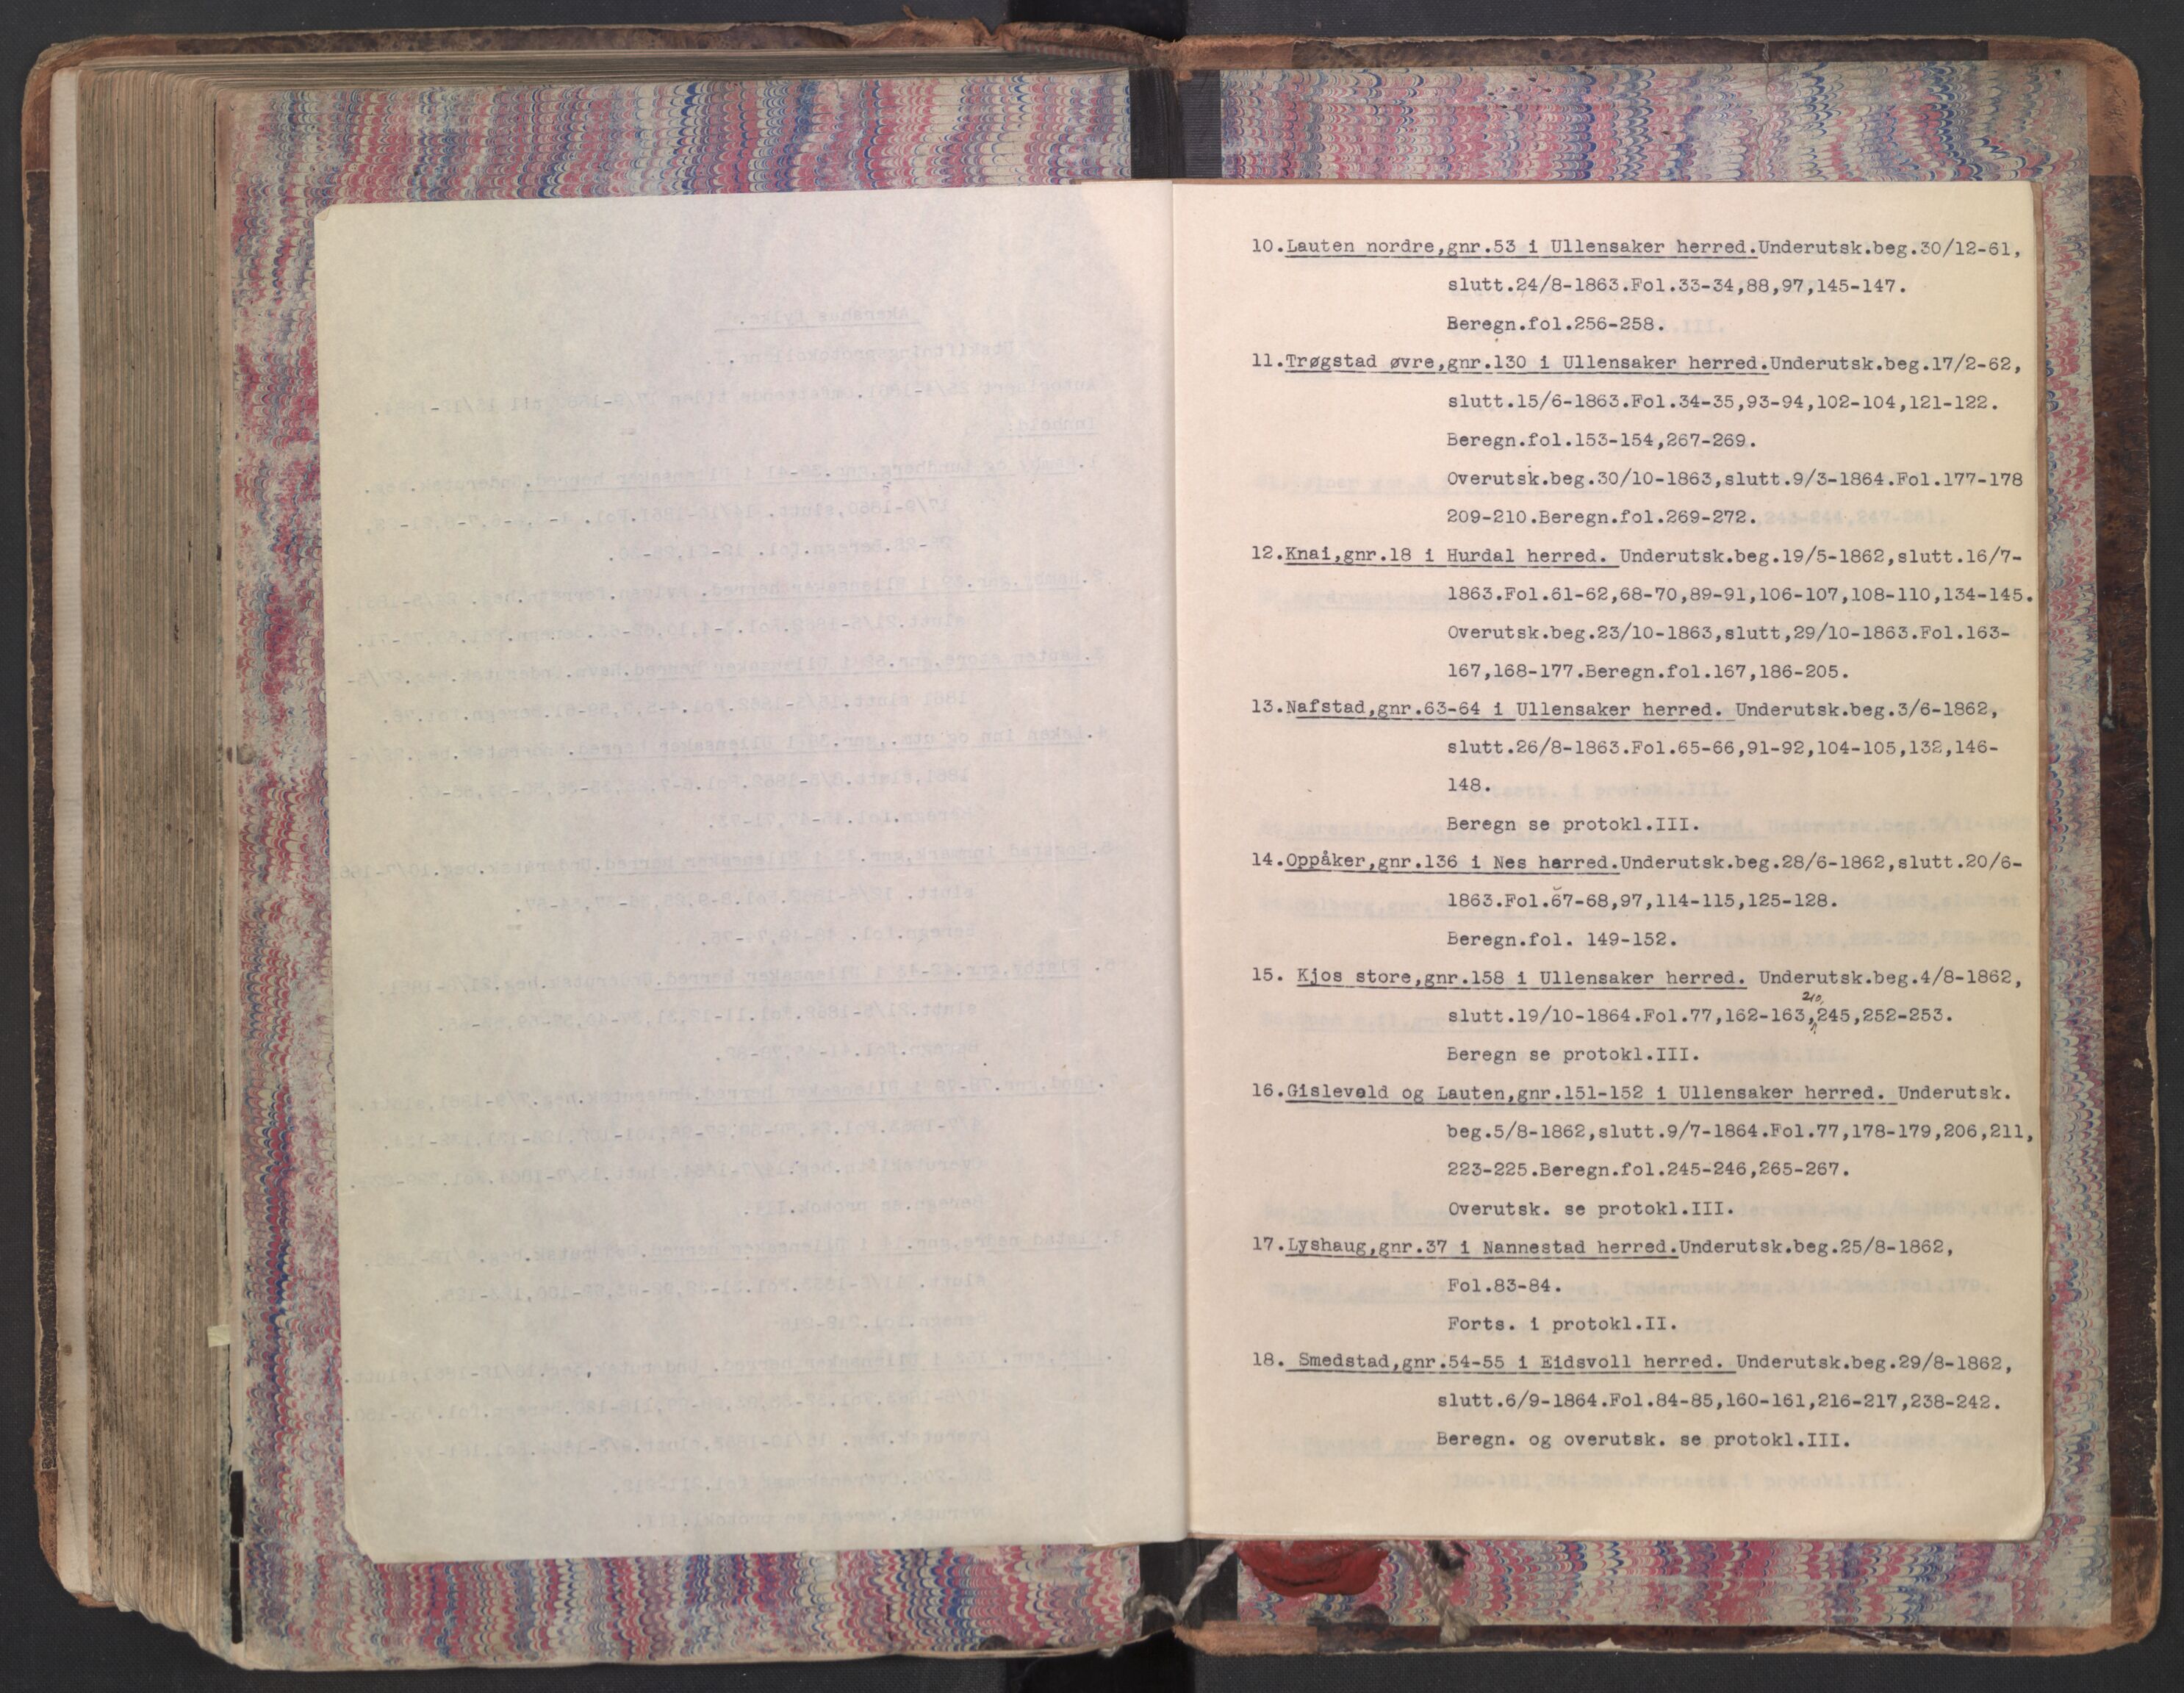 10.Lauten nordre,gnr.53 i Ullensaker herred.Underutsk.beg.30/12-61,
slutt.24/8-1863.Fol.33-34,88,97,145-147.
Beregn.fol.256-258.
11.Trøgstad øvre,gnr.130 i Ullensaker herred.Underutsk.beg.17/2-62,
slutt.15/6-1863.Fol.34-35,93-94,102-104,121-122.
Beregn.fol.153-154,267-269.
Overutsk.beg.30/10-1863,slutt.9/3-1864.Fol.177-178
209-210.Beregn.fol.269-272.
12.Knai,gnr.18 i Hurdal herred. Underutsk.beg.19/5-1862,slutt.16/7-
1863.Fol.61-62,68-70,89-91,106-107,108-110,134-145.
Overutsk.beg.23/10-1863,slutt,29/10-1863.Fol.163-
167,168-177.Beregn.fol.167,186-205.
13.Nafstad,gnr.63-64 i Ullensaker herred. Underutsk.beg.3/6-1862,
slutt.26/8-1863.Fol.65-66,91-92,104-105,132,146-
148.
Beregn se protokl.III.
14.Oppåker,gnr.136 i Nes herred.Underutsk.beg.28/6-1862,slutt.20/6-
1863.Fol.67-68,97,114-115,125-128.
Beregn.fol. 149-152.
15. Kjos store,gnr.158 i Ullensaker herred. Underutsk.beg.4/8-1862,
slutt.19/10-1864.Fol.77,162-163,210,245,252-253.
Beregn se protokl.III.
16.Gisleveld og Lauten,gnr.151-152 i Ullensaker herred. Underutsk.
beg.5/8-1862,slutt.9/7-1864.Fol.77,178-179,206,211,
223-225.Beregn.fol.245-246,265-267.
Overutsk. se protokl.III.
17.Lyshaug,gnr.37 i Nannestad herred.Underutsk.beg.25/8-1862,
Fol.83-84.
Forts. i protokl.II.
18. Smedstad,gnr.54-55 i Eidsvoll herred. Underutsk.beg.29/8-1862,
slutt.6/9-1864.Fol.84-85,160-161,216-217,238-242.
Beregn. og overutsk. se protokl.III.